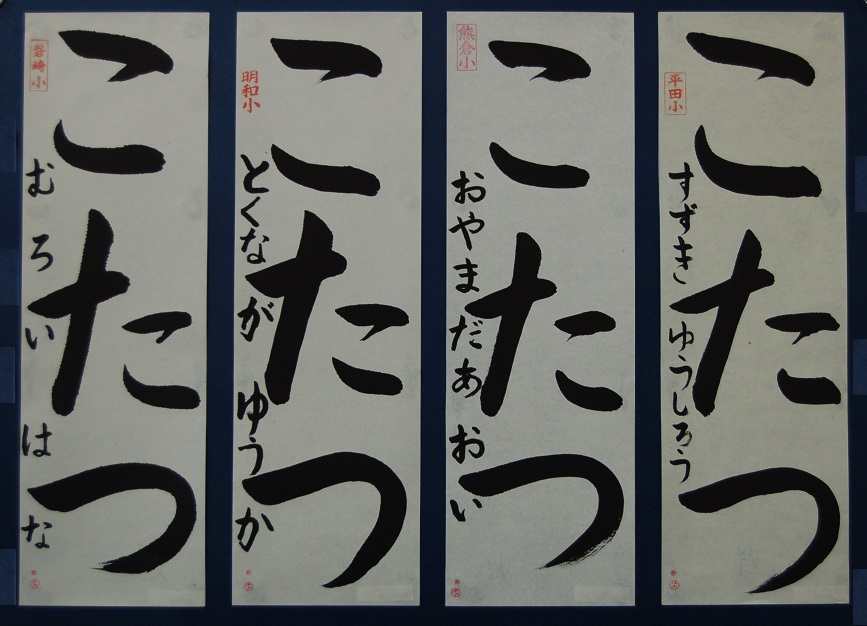 こたつ
平田小
すずき ゆうしろう
こたつ
熊倉小
おやまだ あおい
こたつ
明和小
とくなが ゆうか
こたつ
磐崎小
むろい はな